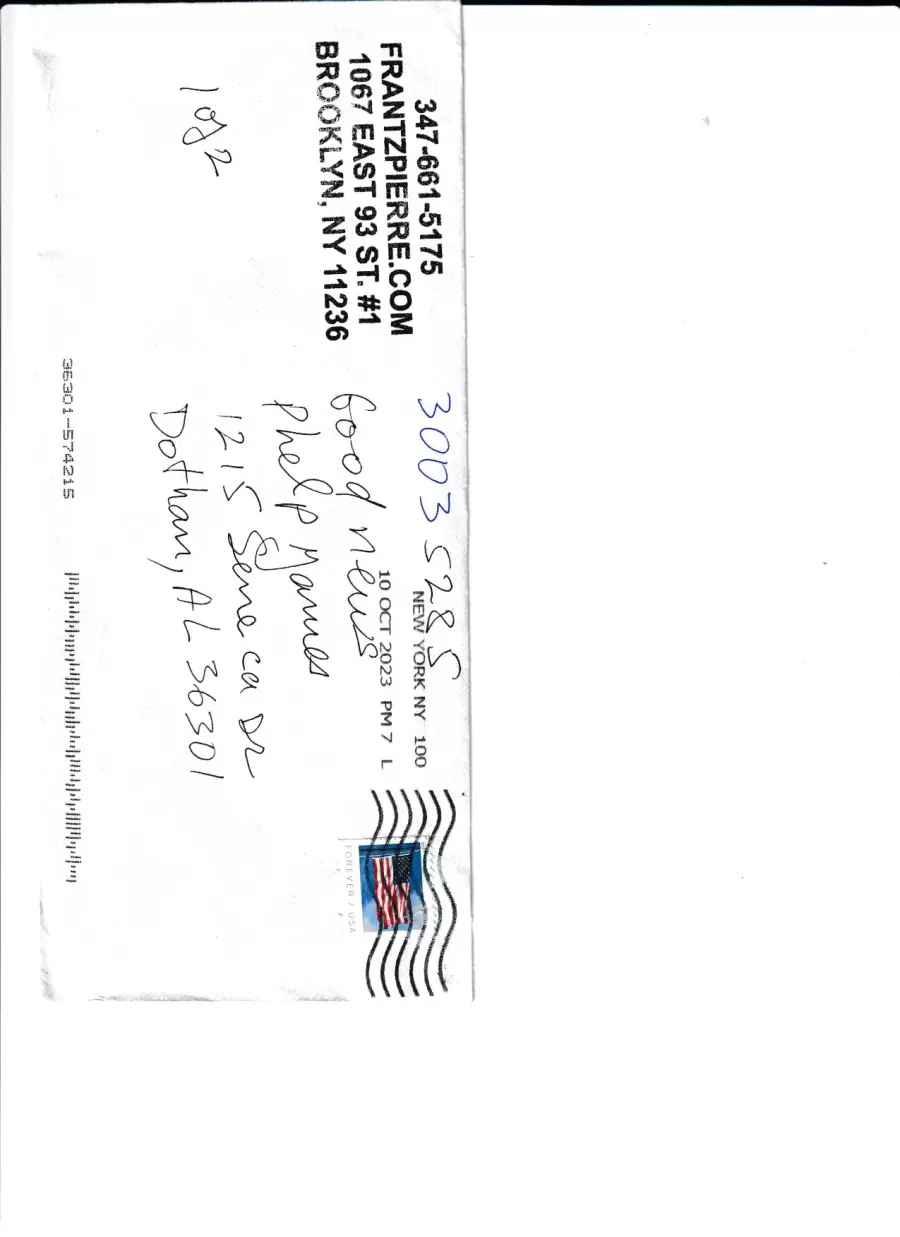 347-661-5175
FRANTZPIERRE.COM
1067 EAST 93 ST. #1
BROOKLYN, NY 11236
NEW YORK NY 100
10 OCT 2023 PM 7 L
FOREVER / USA
3003 5285
Good news
Phelp
1215 Seneca Dr
Dothan, AL 36301
36301-574215